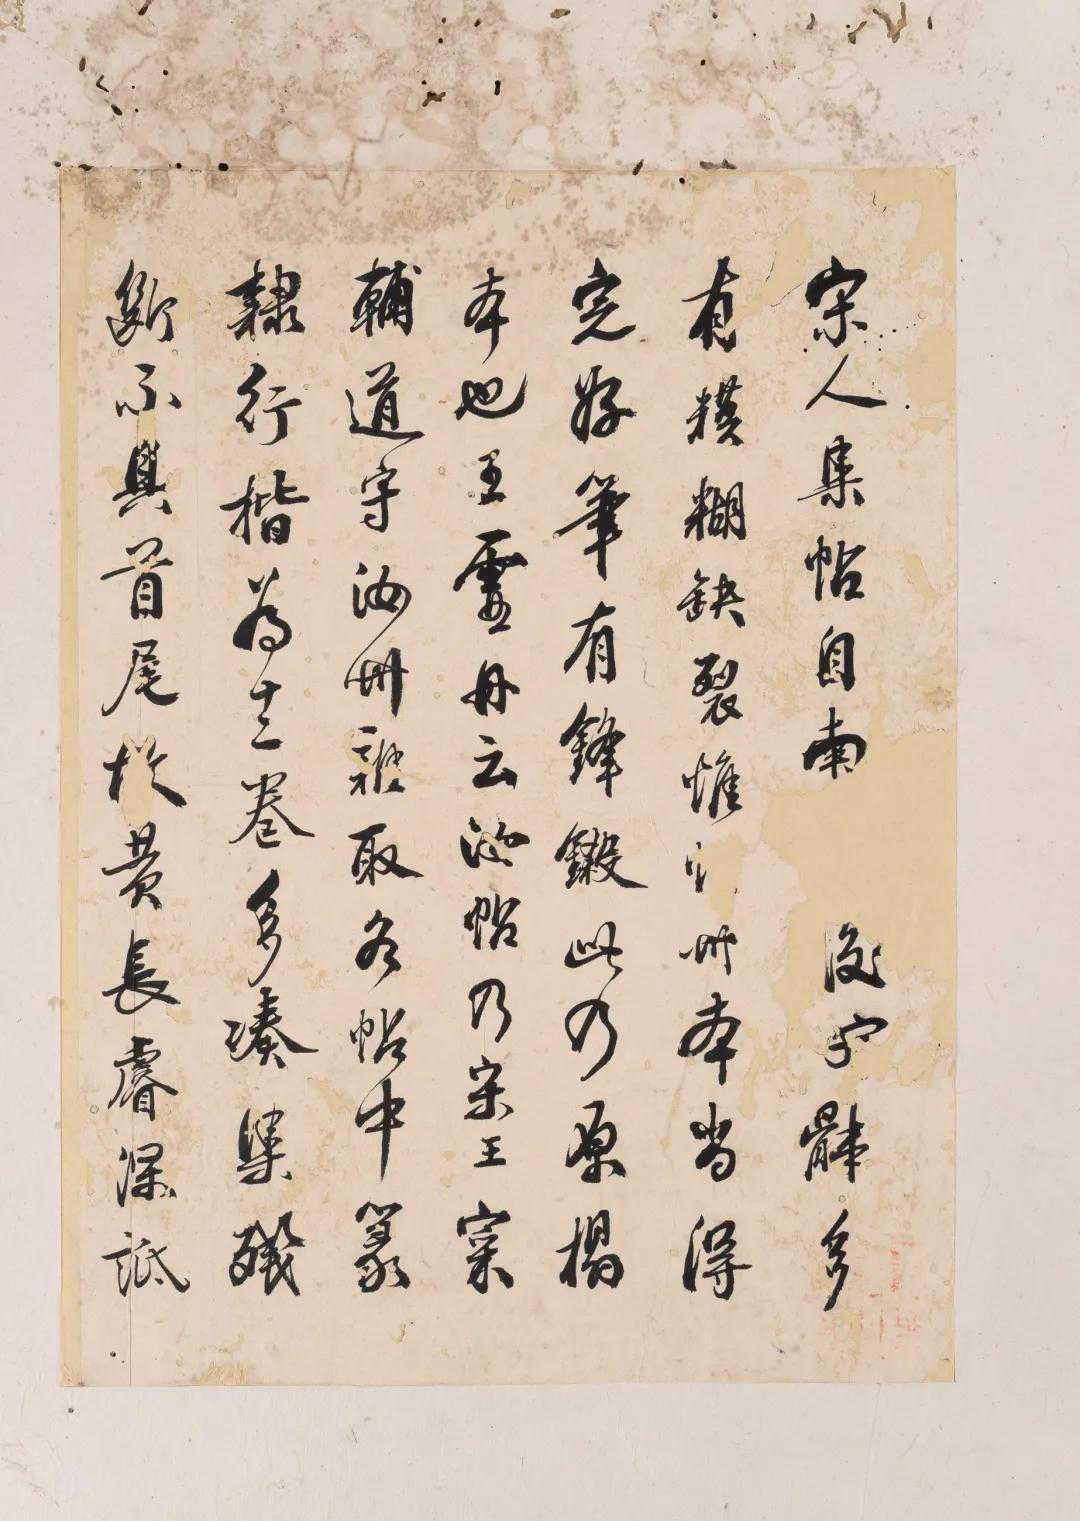 宋人集帖自南後字體多
有模糊缺裂惟州本尚得
完好筆有鋒鍛此乃原榻
本也王虛舟云汝帖乃宋王寀
輔道守汝州雜取各帖中篆
隸行楷為十二卷多湊集殘
斷不具首尾故黄長睿深詆